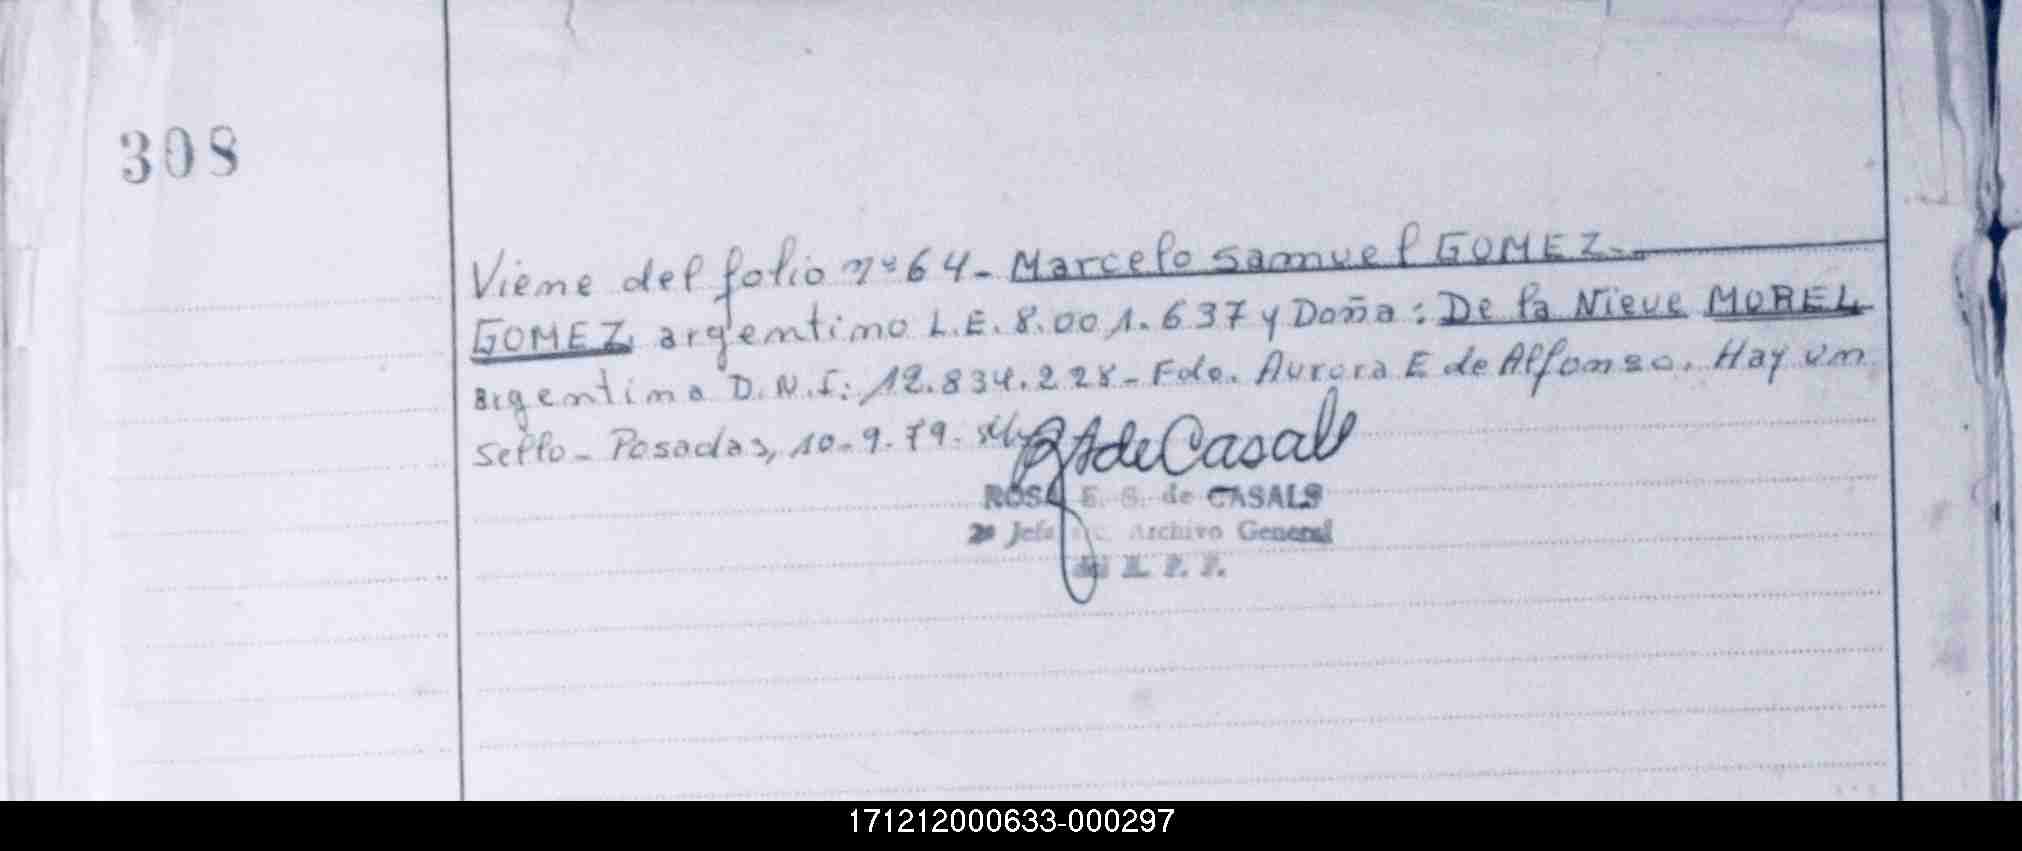 308
Viene del folio nº 64 - Marcelo Samuel GOMEZ.-
GOMEZ, argentino L.E. 8.001.637 y Doña: De la Nieve MOREL
argentina D.N.I: 12.834.228 - Fdo. Aurora E de Alfonso. Hay un
sello - Posadas, 10-9-79.
de Casals
ROSA E. S. de CASALS
2º Jefa Archivo General
del R. P. P.
171212000633-000297